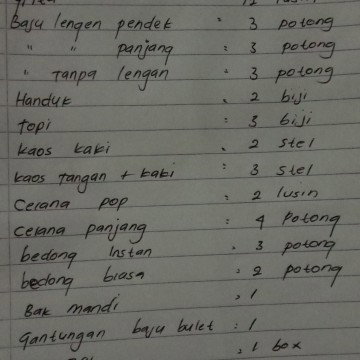 Baju lengen pendek : 3 potong
" " panjang : 3 potong
" Tanpa lengan : 3 potong
Handuk : 2 biji
Topi : 3 biji
kaos kaki : 2 stel
kaos tangan + kaki : 3 stel
Celana pop : 2 lusin
Celana panjang : 4 potong
bedong instan : 3 potong
bedong biasa : 2 potong
Bak mandi : 1
gantungan baju bulet : 1
: 1 box